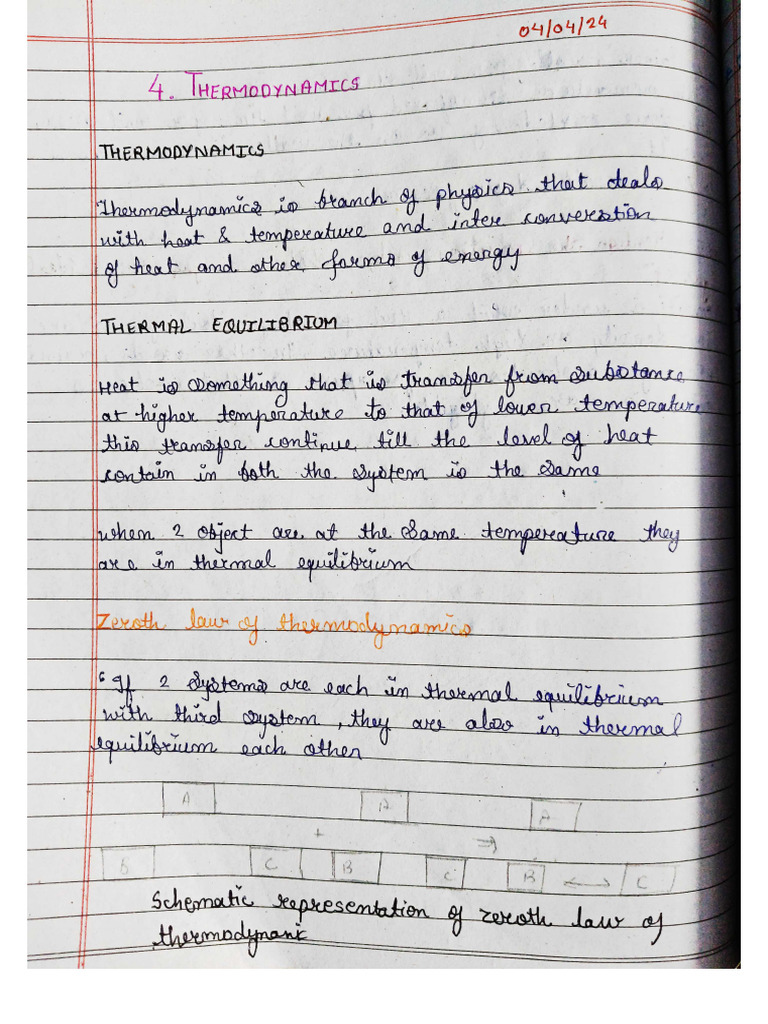 04/04/24
4. THERMODYNAMICS
THERMODYNAMICS
Thermodynamics is branch of physics that deals
with heat & temperature and inter converstion
of heat and other forms of energy
THERMAL EQUILIBRIUM
Heat is something that is transfer from substance
at higher temperature to that of lower temperature
this transfer continue till the level of heat
contain in both the system is the same
when 2 object are at the same temperature they
are in thermal equilibrium
Zeroth law of thermodynamics
“If 2 systems are each in thermal equilibrium
with third system, they are also in thermal
equilibrium each other
A A A
+ ⇒
B C B C B ↔ C
Schematic representation of zeroth law of
thermodynamic